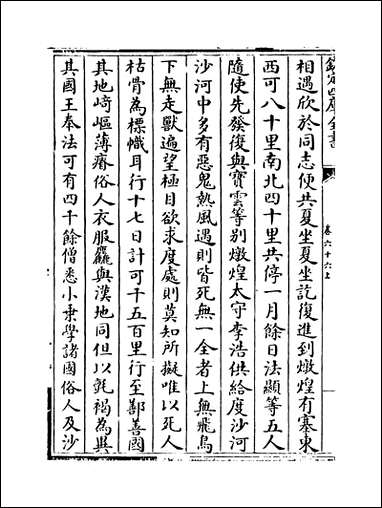 欽定四庫全書
卷六十六上
相遇欣於同志便共夏坐夏坐訖復進到燉煌有塞東
西可八十里南北四十里共停一月餘日法顯等五人
隨使先發復與寳雲等别燉煌太守李浩供給度沙河
沙河中多有惡鬼熱風遇則皆死無一全者上無飛鳥
下無走獸遍望極目欲求度處則莫知所擬唯以死人
枯骨為標幟耳行十七日計可千五百里行至鄯善國
其地﨑嶇薄瘠俗人衣服麤與漢地同但以氈褐為異
其國王奉法可有四千餘僧悉小乗學諸國俗人及沙